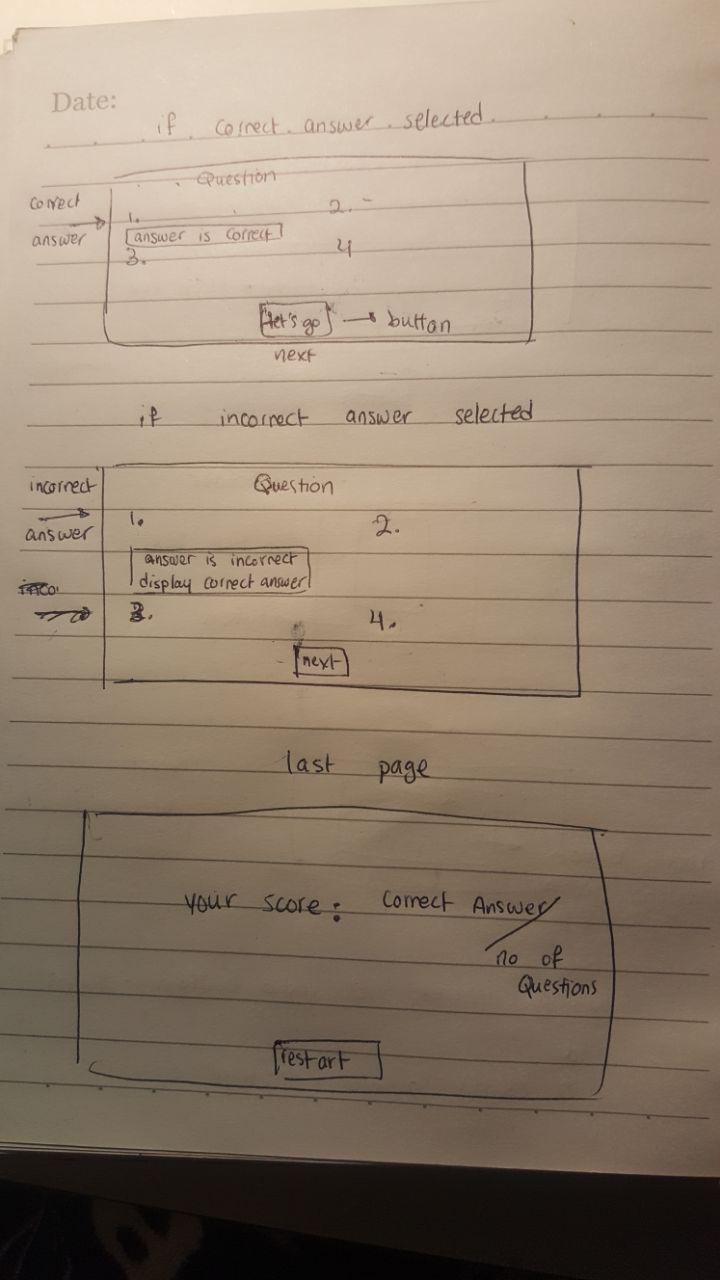 Date:
if correct answer selected.
Question
correct
1.
2. -
answer
answer is correct
3.
4
let's go → button
next
if incorrect answer selected
incorrect
Question
1.
2.
answer
answer is incorrect
display correct answer
3.
4.
next
last page
your score: correct Answer/
no of
Questions
restart